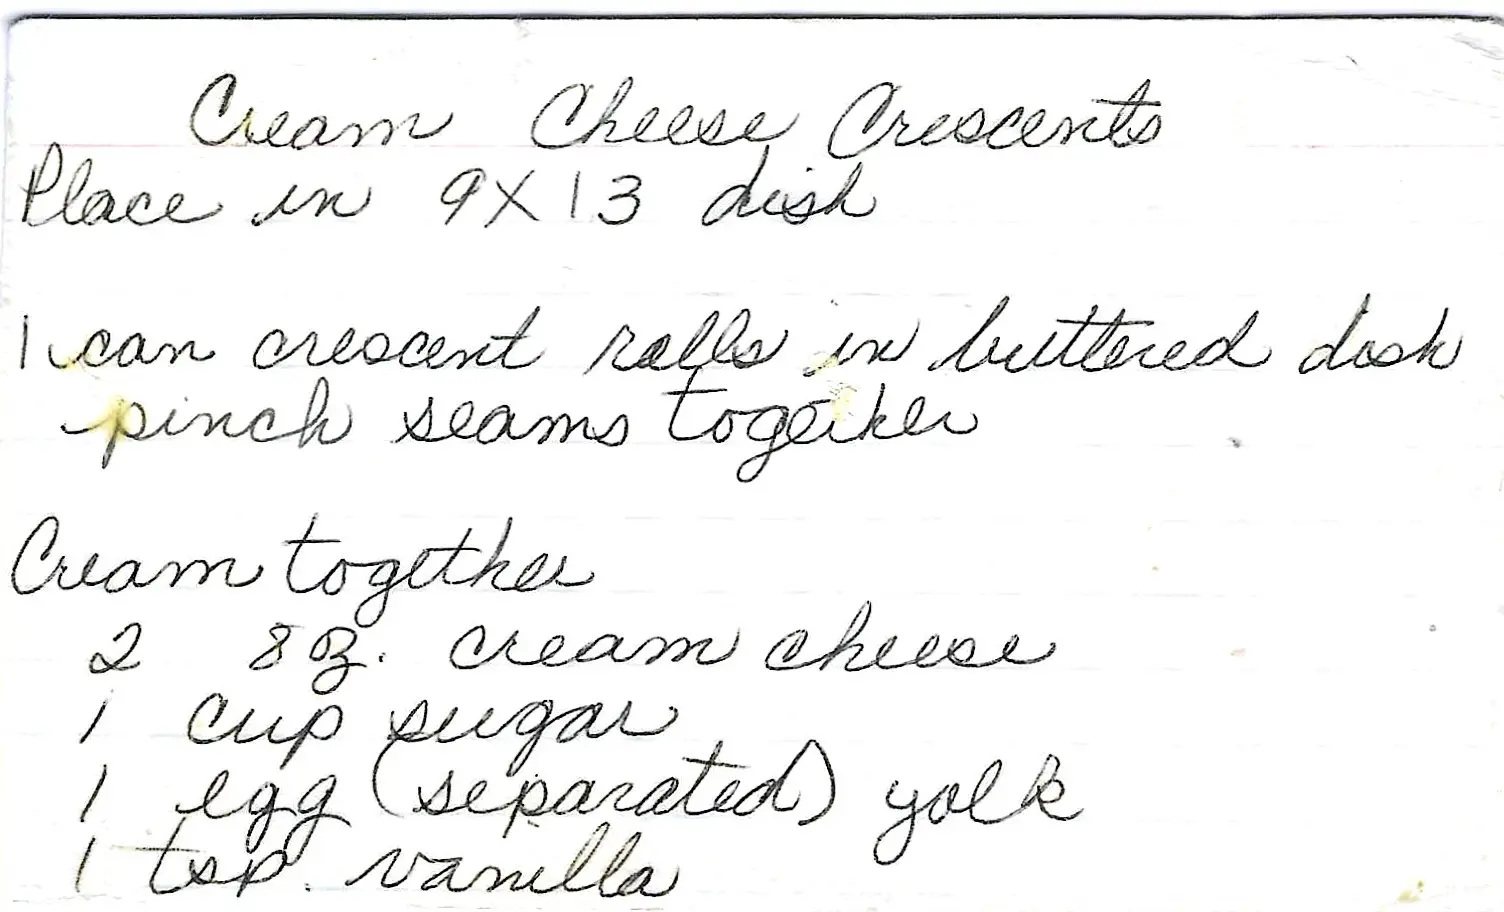 Cream Cheese Crescents
Place in 9X13 dish
1 can crescent rolls in buttered dish
pinch seams together
Cream together
2 8 oz. cream cheese
1 cup sugar
1 egg (separated) yolk
1 tsp. vanilla